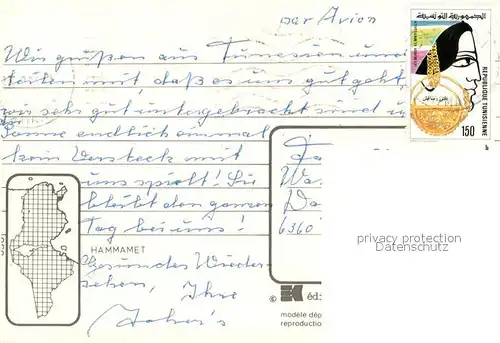 par Avion
Wir grüßen aus Tunesien und
teilen mit, daß es uns gut geht,
wir sehr gut untergebracht sind u.
Sonne endlich einmal
kein Versteck mit
uns spielt! Sie
bleibt den ganzen
Tag bei uns!
HAMMAMET
Gesundes Wieder-
sehen, Ihre
الجمهورية التونسية
REPUBLIQUE TUNISIENNE
150
Wa
Da
6360
privacy protection
Datenschutz
© éd:
modèle dép
reproductio